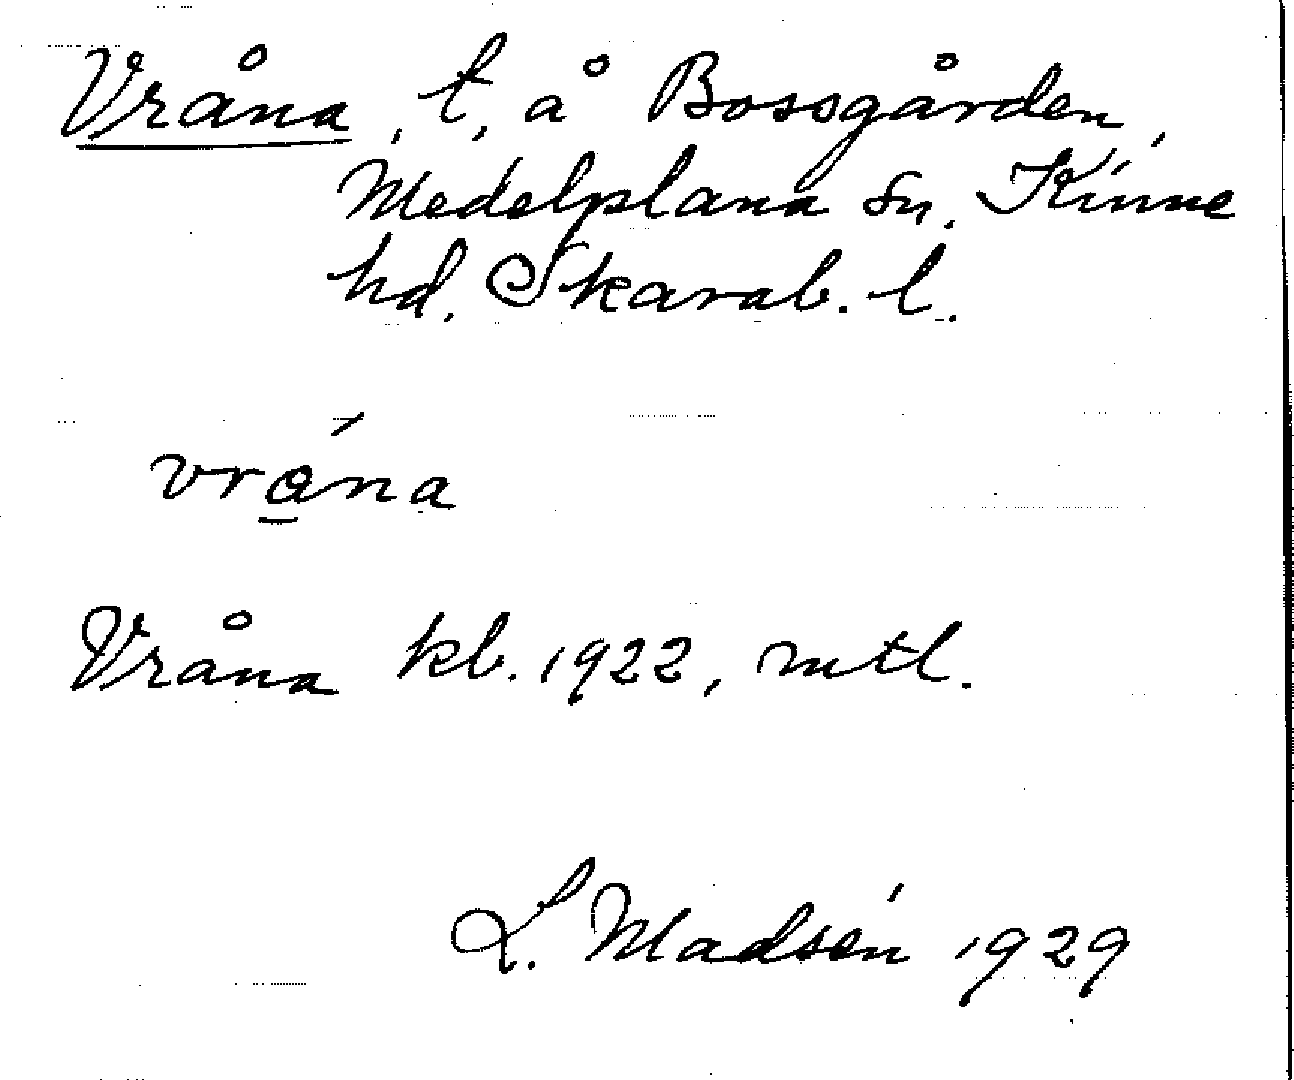 Vråna, t, å Bossgården,
Medelplana sn. Kinne
hd. Skarab. l.
vrána
Vråna kb. 1922, mtl.
L. Madsén 1929